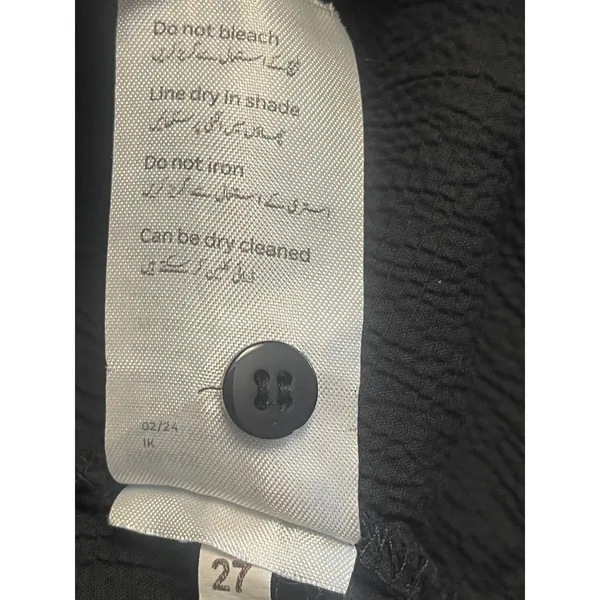 Do not bleach
بلیچ کے استعمال سے گریز کریں
Line dry in shade
چھاؤں میں الگنی پر سکھائیں
Do not iron
استری کے استعمال سے گریز کریں
Can be dry cleaned
ڈرائی کلین کر سکتے ہیں
02/24
IK
27